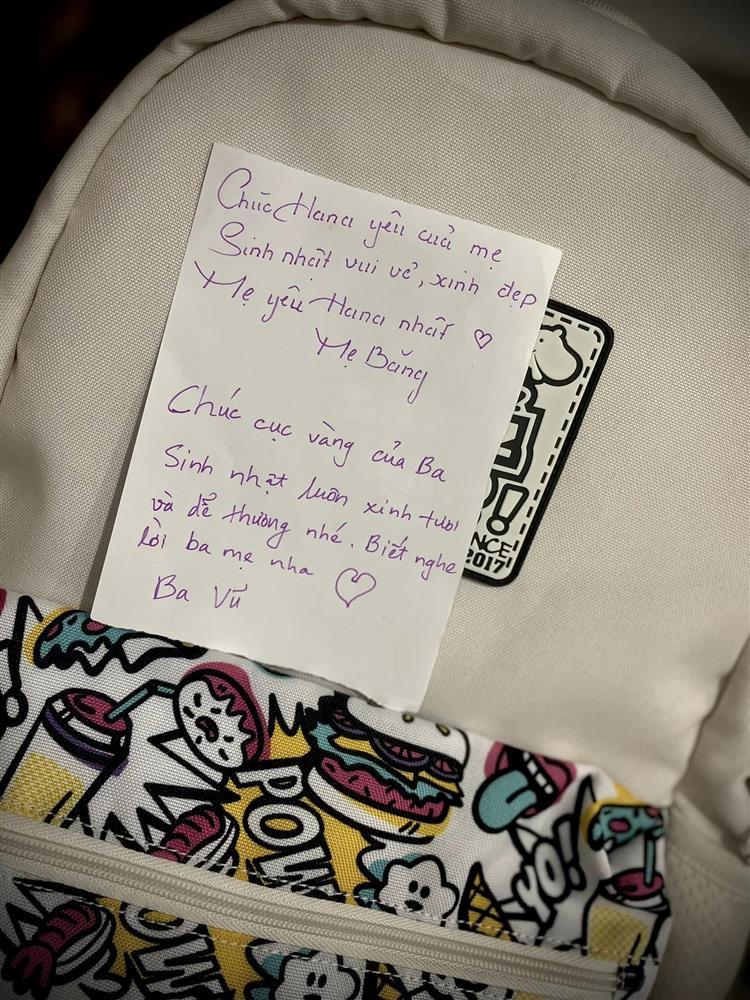 Chúc Hana yêu cuả mẹ
Sinh nhật vui vẻ, xinh đẹp
Mẹ yêu Hana nhất ♡
Mẹ Băng
Chúc cục vàng của Ba
Sinh nhật luôn xinh tươi
và dễ thương nhé. Biết nghe
lời ba mẹ nha ♡
Ba Vũ
2017
POW
YO!
OW